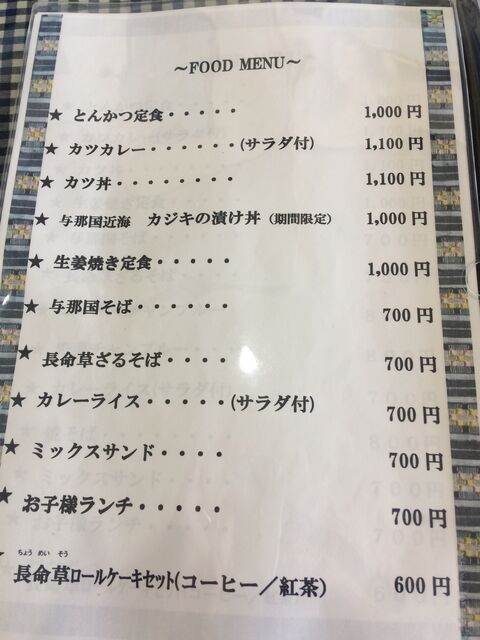 ~FOOD MENU~
★ とんかつ定食・・・・・ 1,000円
★ カツカレー・・・・・・(サラダ付) 1,100円
★ カツ丼・・・・・・・・ 1,100円
★ 与那国近海 カジキの漬け丼(期間限定) 1,000円
★ 生姜焼き定食・・・・・ 1,000円
★ 与那国そば・・・・・・ 700円
★ 長命草ざるそば・・・・ 700円
★ カレーライス・・・・・(サラダ付) 700円
★ ミックスサンド・・・・ 700円
★ お子様ランチ・・・・・ 700円
ちょう めい そう
長命草ロールケーキセット(コーヒー/紅茶) 600円